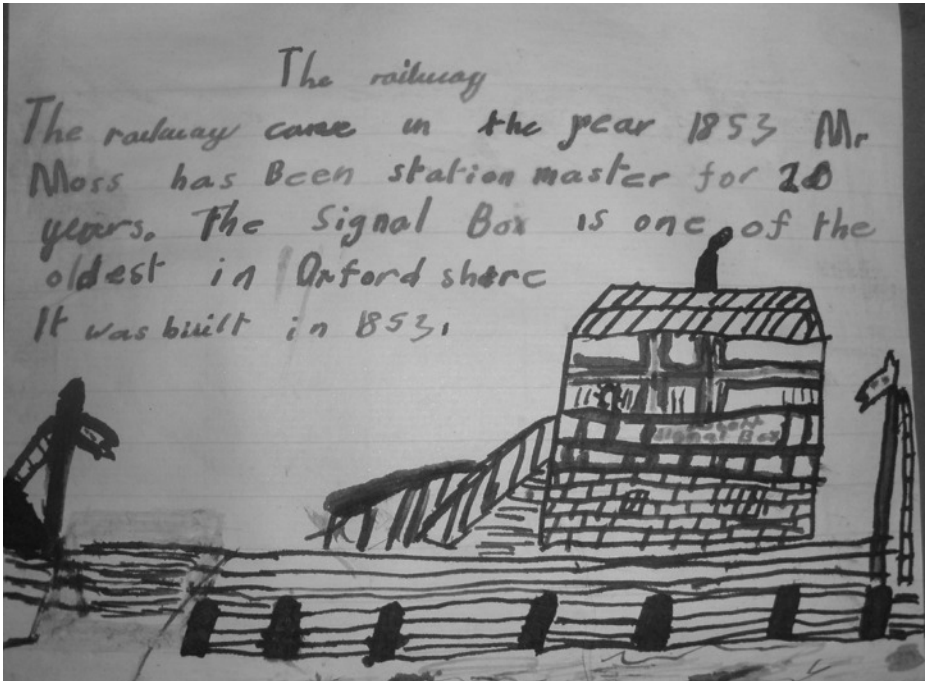 The railway
The railway came in the year 1853 Mr
Moss has Been station master for 20
years. The Signal Box is one of the
oldest in Oxford shere
It was built in 1853.
Signal Box